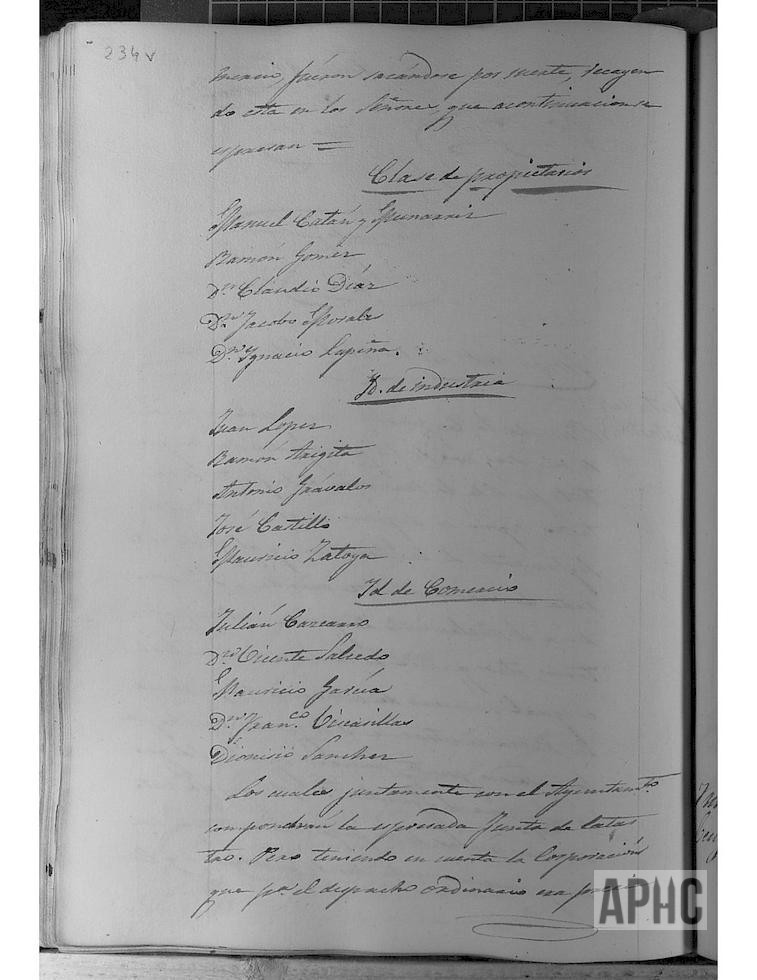 234 v
mercio, fueron sacándose por suerte, recayen
do esta en los Señores que acontinuacion se
espresan =
Clase de propietarios
Manuel Catán y Munarriz
Ramón Gomez
Dn Claudio Diaz
Dn Jacobo Morales
Dn Ygnacio Lapeña.
Yd. de industria
Juan Lopez
Ramón Arigita
Antonio Grávalos
José Castillo
Mauricio Zatoya
Yd de Comercio
Julián Carcamo
Dn Vicente Salcedo
Mauricio García
Dn Franco Vicasillas
Dionisio Sanchez
Los cuales juntamente con el Ayuntamto
compondrán la espresada Junta de Catas
tro. Pero teniendo en cuenta la Corporación
que pa el despacho ordinario era
APHC